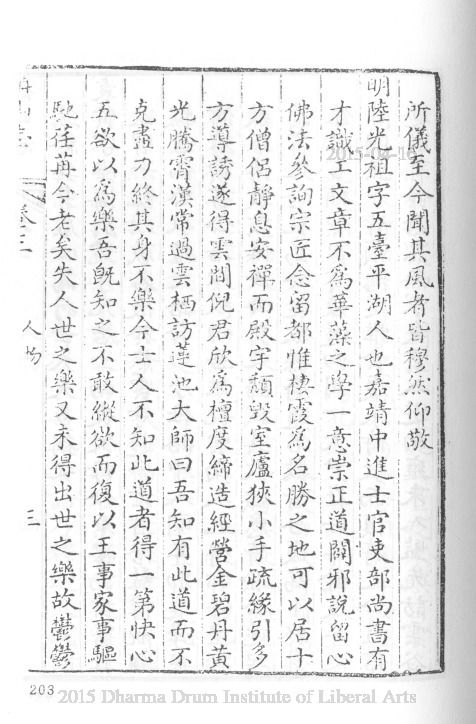 所儀至今聞其風者皆穆然仰敬
明陸光祖字五臺平湖人也嘉靖中進士官吏部尚書有
才識工文章不為華藻之學一意崇正道闢邪說留心
佛法參詢宗匠念留都惟棲霞為名勝之地可以居十
方僧侶靜息安禪而殿宇頹毀室廬狹小手疏緣引多
方導誘遂得雲間倪君欣為檀度締造經營金碧丹黃
光騰霄漢常過雲栖訪蓮池大師曰吾知有此道而不
克盡力終其身不樂今士人不知此道者得一第快心
五欲以為樂吾既知之不敢縱欲而復以王事家事驅
馳荏苒今老矣失人世之樂又未得出世之樂故鬱鬱
卷三
人物
三
203
2015 Dharma Drum Institute of Liberal Arts